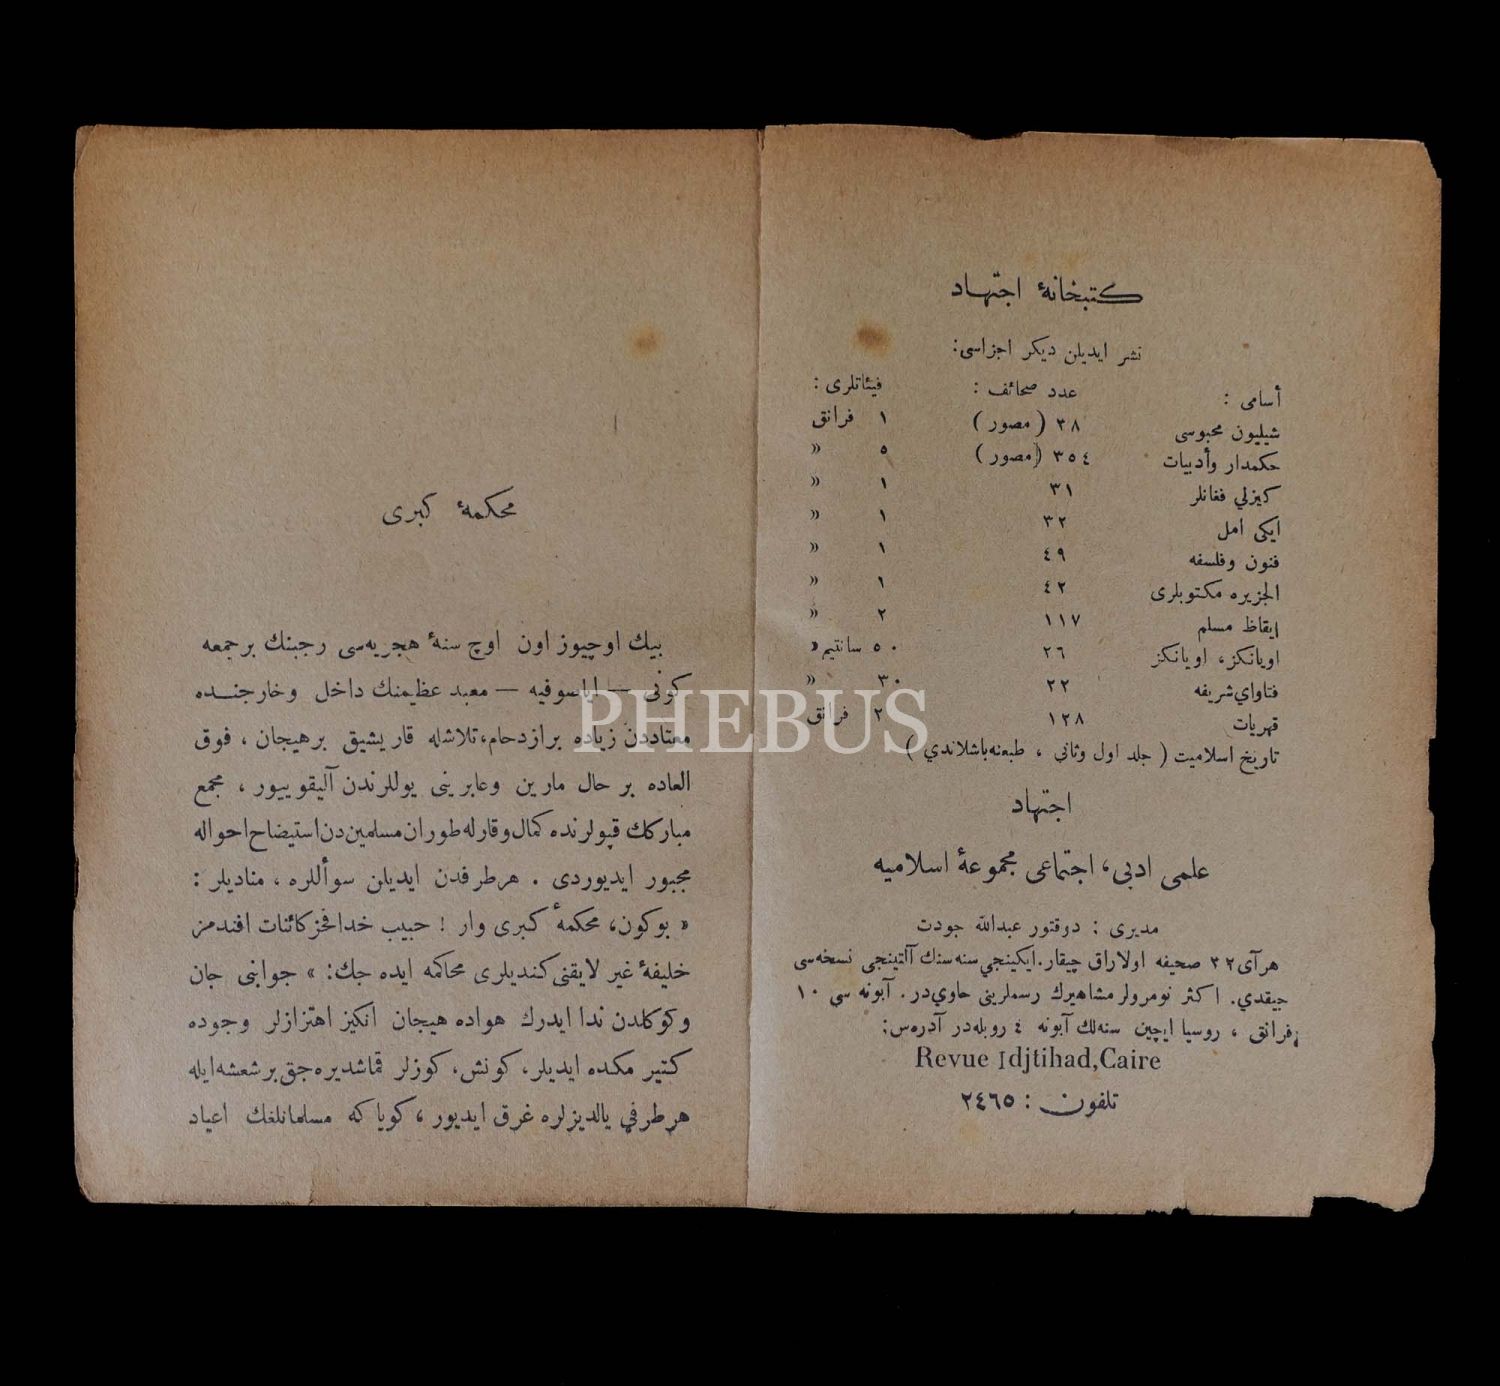 كتبخانهٔ اجتهاد
نشر ايديلن ديكر اجزاسى:
أسامى : عدد صحائف : فيئاتلرى :
شيليون محبوسى ٣٨ ( مصور ) ١ فرانق
حكمدار وأدبيات ٣٥٤ (مصور ) ٥ »
كيزلي فغانلر ٣١ ١ »
ايكى امل ٣٢ ١ »
فنون وفلسفه ٤٩ ١ »
الجزيره مكتوبلرى ٤٢ ١ »
ايقاظ مسلم ١١٧ ٢ »
اويانكز، اويانكز ٢٦ ٥٠ سانتيم »
فتاواي شريفه ٢٢ ٣٠ »
قهريات ١٢٨ ٢ فرانق
تاريخ اسلاميت ( جلد اول وثانى ، طبعنه باشلاندي )
اجتهاد
علمى ادبى، اجتماعى مجموعهٔ اسلاميه
مديرى : دوقتور عبدالله جودت
هر آى ٣٢ صحيفه اولاراق چيقار. ايكينجي سنه سنك آلتينجى نسخه سى
چيقدي. اكثر نومرولر مشاهيرك رسملرينى حاوي در. آبونه سى ١٠
فرانق ، روسيا ايچين سنه لك آبونه ٤ روبله در آدره س:
Revue Idjtihad,Caire
تلفون : ٢٤٦٥
محكمهٔ كبرى
بيك اوچيوز اون اوچ سنهٔ هجريه سى رجبنك بر جمعه
كونى — اياصوفيه — معبد عظيمنك داخل وخارجنده
معتاددن زياده بر ازدحام، تلاشله قاريشيق بر هيجان ، فوق
العاده بر حال مارين وعابرينى يوللرندن آليقوييور ، مجمع
مباركك قپولرنده كمال وقارله طوران مسلمين دن استيضاح احواله
مجبور ايديوردى . هر طرفدن ايديلن سوأللره ، مناديلر :
« بوكون، محكمهٔ كبرى وار ! حبيب خدا فخر كائنات افندمز
خليفهٔ غير لايقنى كنديلرى محاكمه ايده جك: » جوابنى جان
وكوكلدن ندا ايدرك هواده هيجان انكيز اهتزازلر وجوده
كتيرمكده ايديلر، كونش، كوزلر قماشديره جق بر شعشه ايله
هر طرفي يالديزلره غرق ايديور ، كويا كه مسلمانلغك اعياد
PHEBUS